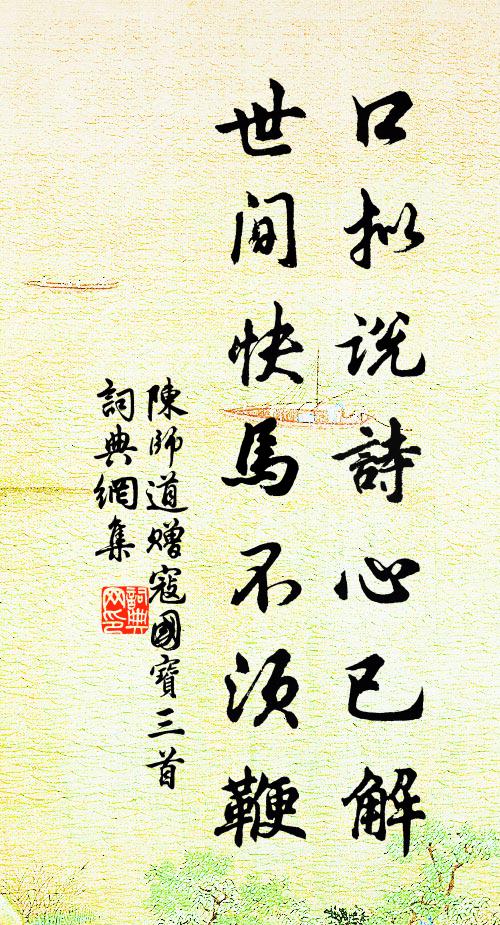 口拟説詩心已解
世间快馬不須鞭
陳師道赠寇國寳三首
詞典網集
詞典
网印